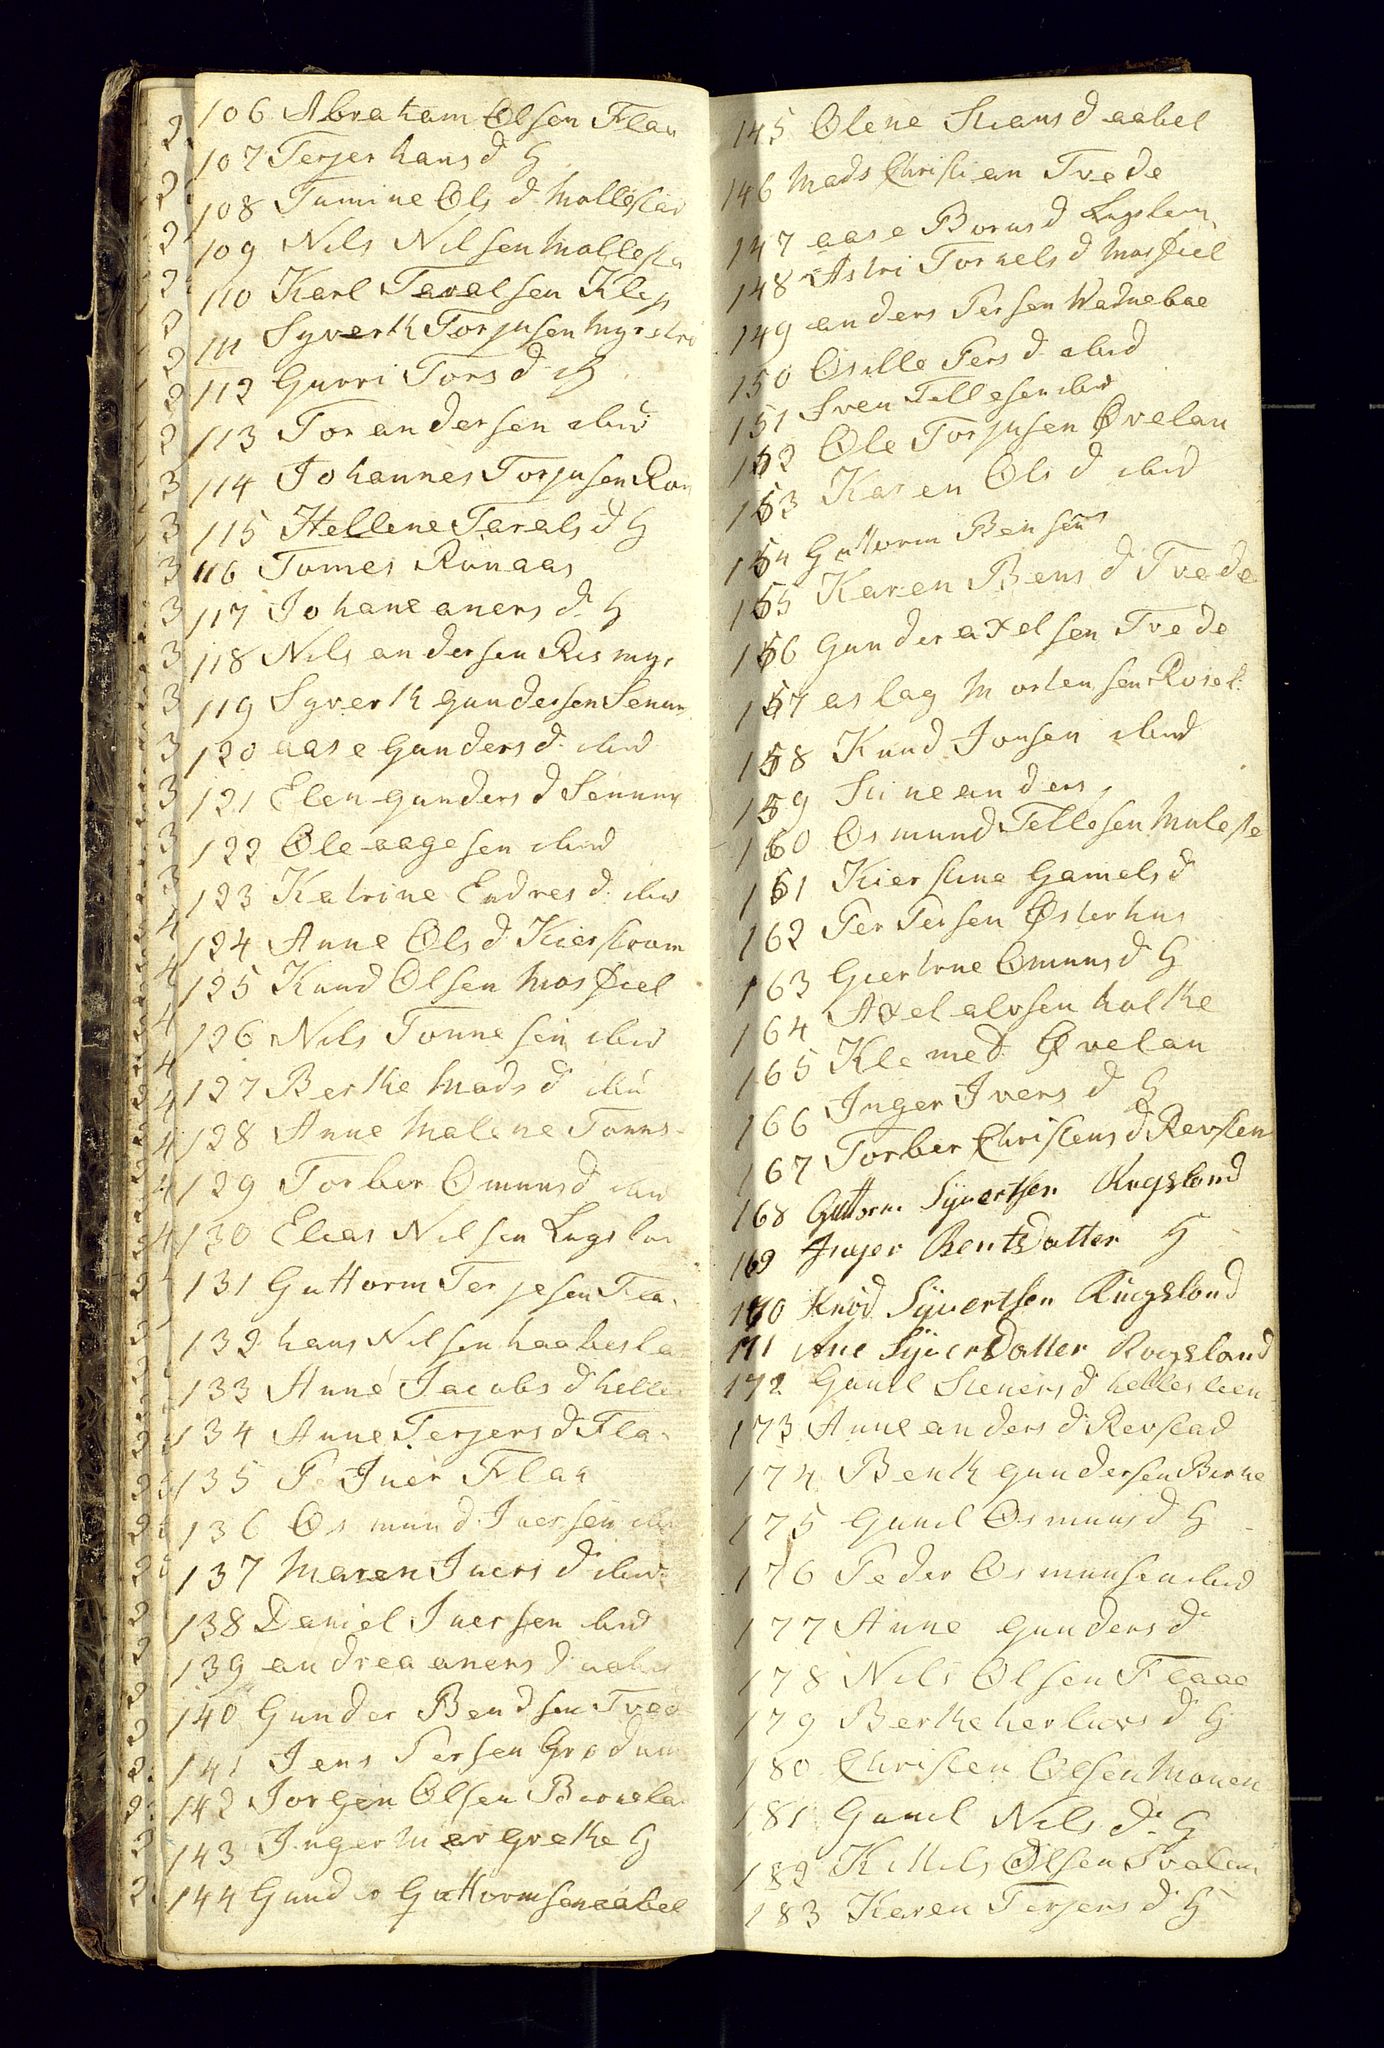 106 Abraham Olsen Flaa
107 Terjer hans d H
108 Tamine Ols d Mollestad
109 Nils Nilsen Mollesta
110 Karl Taralsen Klep
111 Syverth Torjusen Myrstrø
112 Gurri Tors d H
113 Tor andersen ibid
114 Johannes Torjusen Røn
115 Hellene Tarals d H
116 Tomes Rønaas
117 Johane aners d H
118 Nils andersen Rismyr
119 Syverth gundersen Senum
120 aase Gunders d ibid
121 Elen gunders d Senum
122 Ole aagesen ibid
123 Katrine Endres d ibid
124 Anne Ols d Kierstrøm
125 Knud Olsen Mosfiel
126 Nils Tønnesen ibid
127 Berthe Mads d ibid
128 Anne Malene Tønns
129 Torber Omuns d ibid
130 Elias Nilsen Lugslan
131 Guttorm Terjesen Flaa
132 hans Nilsen haabesla
133 Anne Jacobs d helle
134 Anne Terjers d Fla
135 P Iver Flaa
136 Osmund Iversen ibid
137 Maren Ivers d ibid
138 Daniel Iversen ibid
139 andrea aners d aabel
140 Gunder Bendsen Tved
141 Jens Persen Grødum
142 Jorgen Olsen Birkela
143 Inger Margrethe H
144 Gunder Guttormsen aabel
145 Olene Stians d aabel
146 Mads Christian Tvede
147 aase Borus d Lugslan
148 Astri Torkels d Mosfiel
149 anders Persen Wadnebae
150 Osille Pers d ibid
151 Sven Tellesen ibid
152 Ole Torjusen Øvelan
153 Karen Ols d ibid
154 Guttorm Bensen
155 Karen Bens d Tvede
156 Gunder axelsen Tvede
157 aslag Mortensen Roset
158 Knud Jonsen ibid
159 Stine anders
160 Osmund Tellesen Muleste
161 Kierstine Gamels d
162 Per Persen Østerhus
163 Giertrue Omuns d H
164 Axel alvsen holthe
165 Klemed Øvelan
166 Inger Ivers d H
167 Torber Christens d Revsten
168 Guttorm Syvertsen Rugsland
169 Inger Bentsdatter H
170 Knød Syvertsen Rugsland
171 Ane Syverdatter Rugsland
172 Gunil Steners d hellesleen
173 Anne anders d Revstad
174 Benth gundersen Birke
175 Gunil Osmuns d H
176 Peder Osmunsen ibid
177 Anne gunders d
178 Nils Olsen Flaae
179 Berthe herlurs d H
180 Christen Olsen Monen
181 Gunil Nils d H
182 Kittils Olsen Svalan
183 Karen Terjers d H